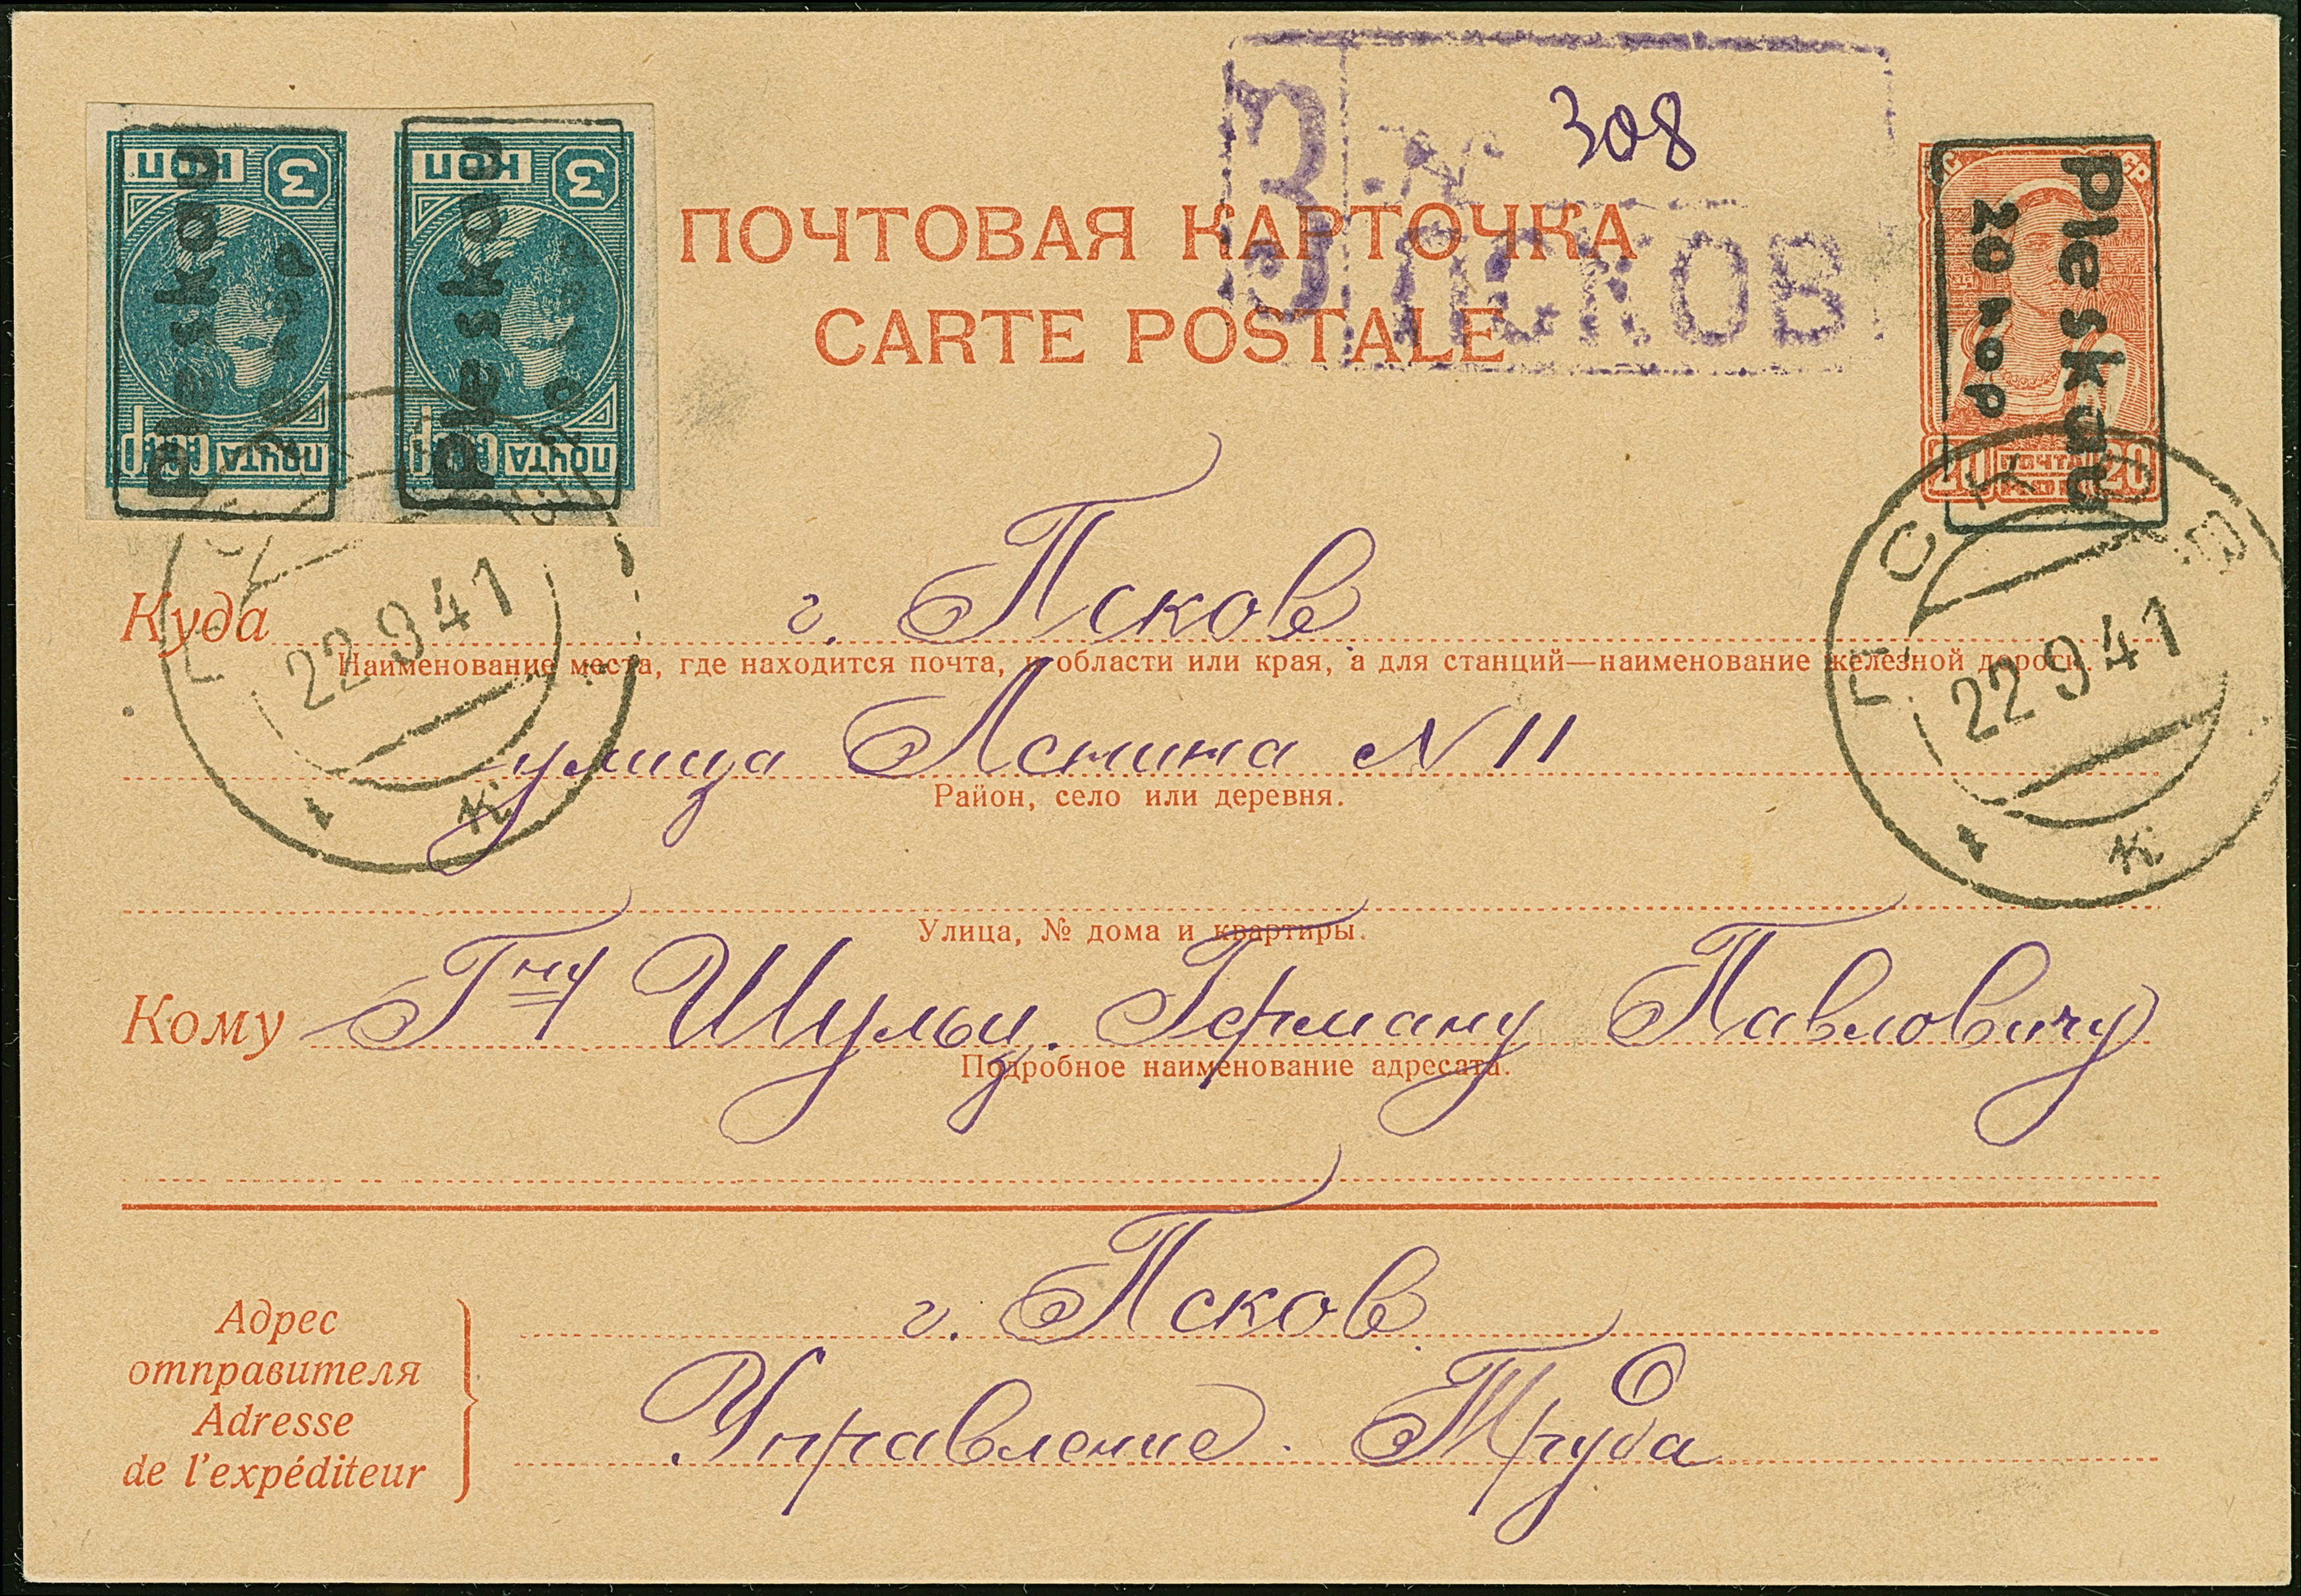 З № 308
ПСКОВ
ПОЧТОВАЯ КАРТОЧКА
CARTE POSTALE
3 КОП
ПОЧТА СССР
Pleskau
20 kop
3 КОП
ПОЧТА СССР
Pleskau
20 kop
СССР
20 ПОЧТА 20
Pleskau
20 kop
ПСКОВ
22 9 41
к
ПСКОВ
22 9 41
к
Куда г. Псков
Наименование места, где находится почта, и области или края, а для станций—наименование железной дороги.
улица Ленина N 11
Район, село или деревня.
Улица, № дома и квартиры.
Кому Г-ну Шульц. Герману Павловичу
Подробное наименование адресата.
Адрес
отправителя
Adresse
de l'expéditeur
г. Псков.
Управление Труда